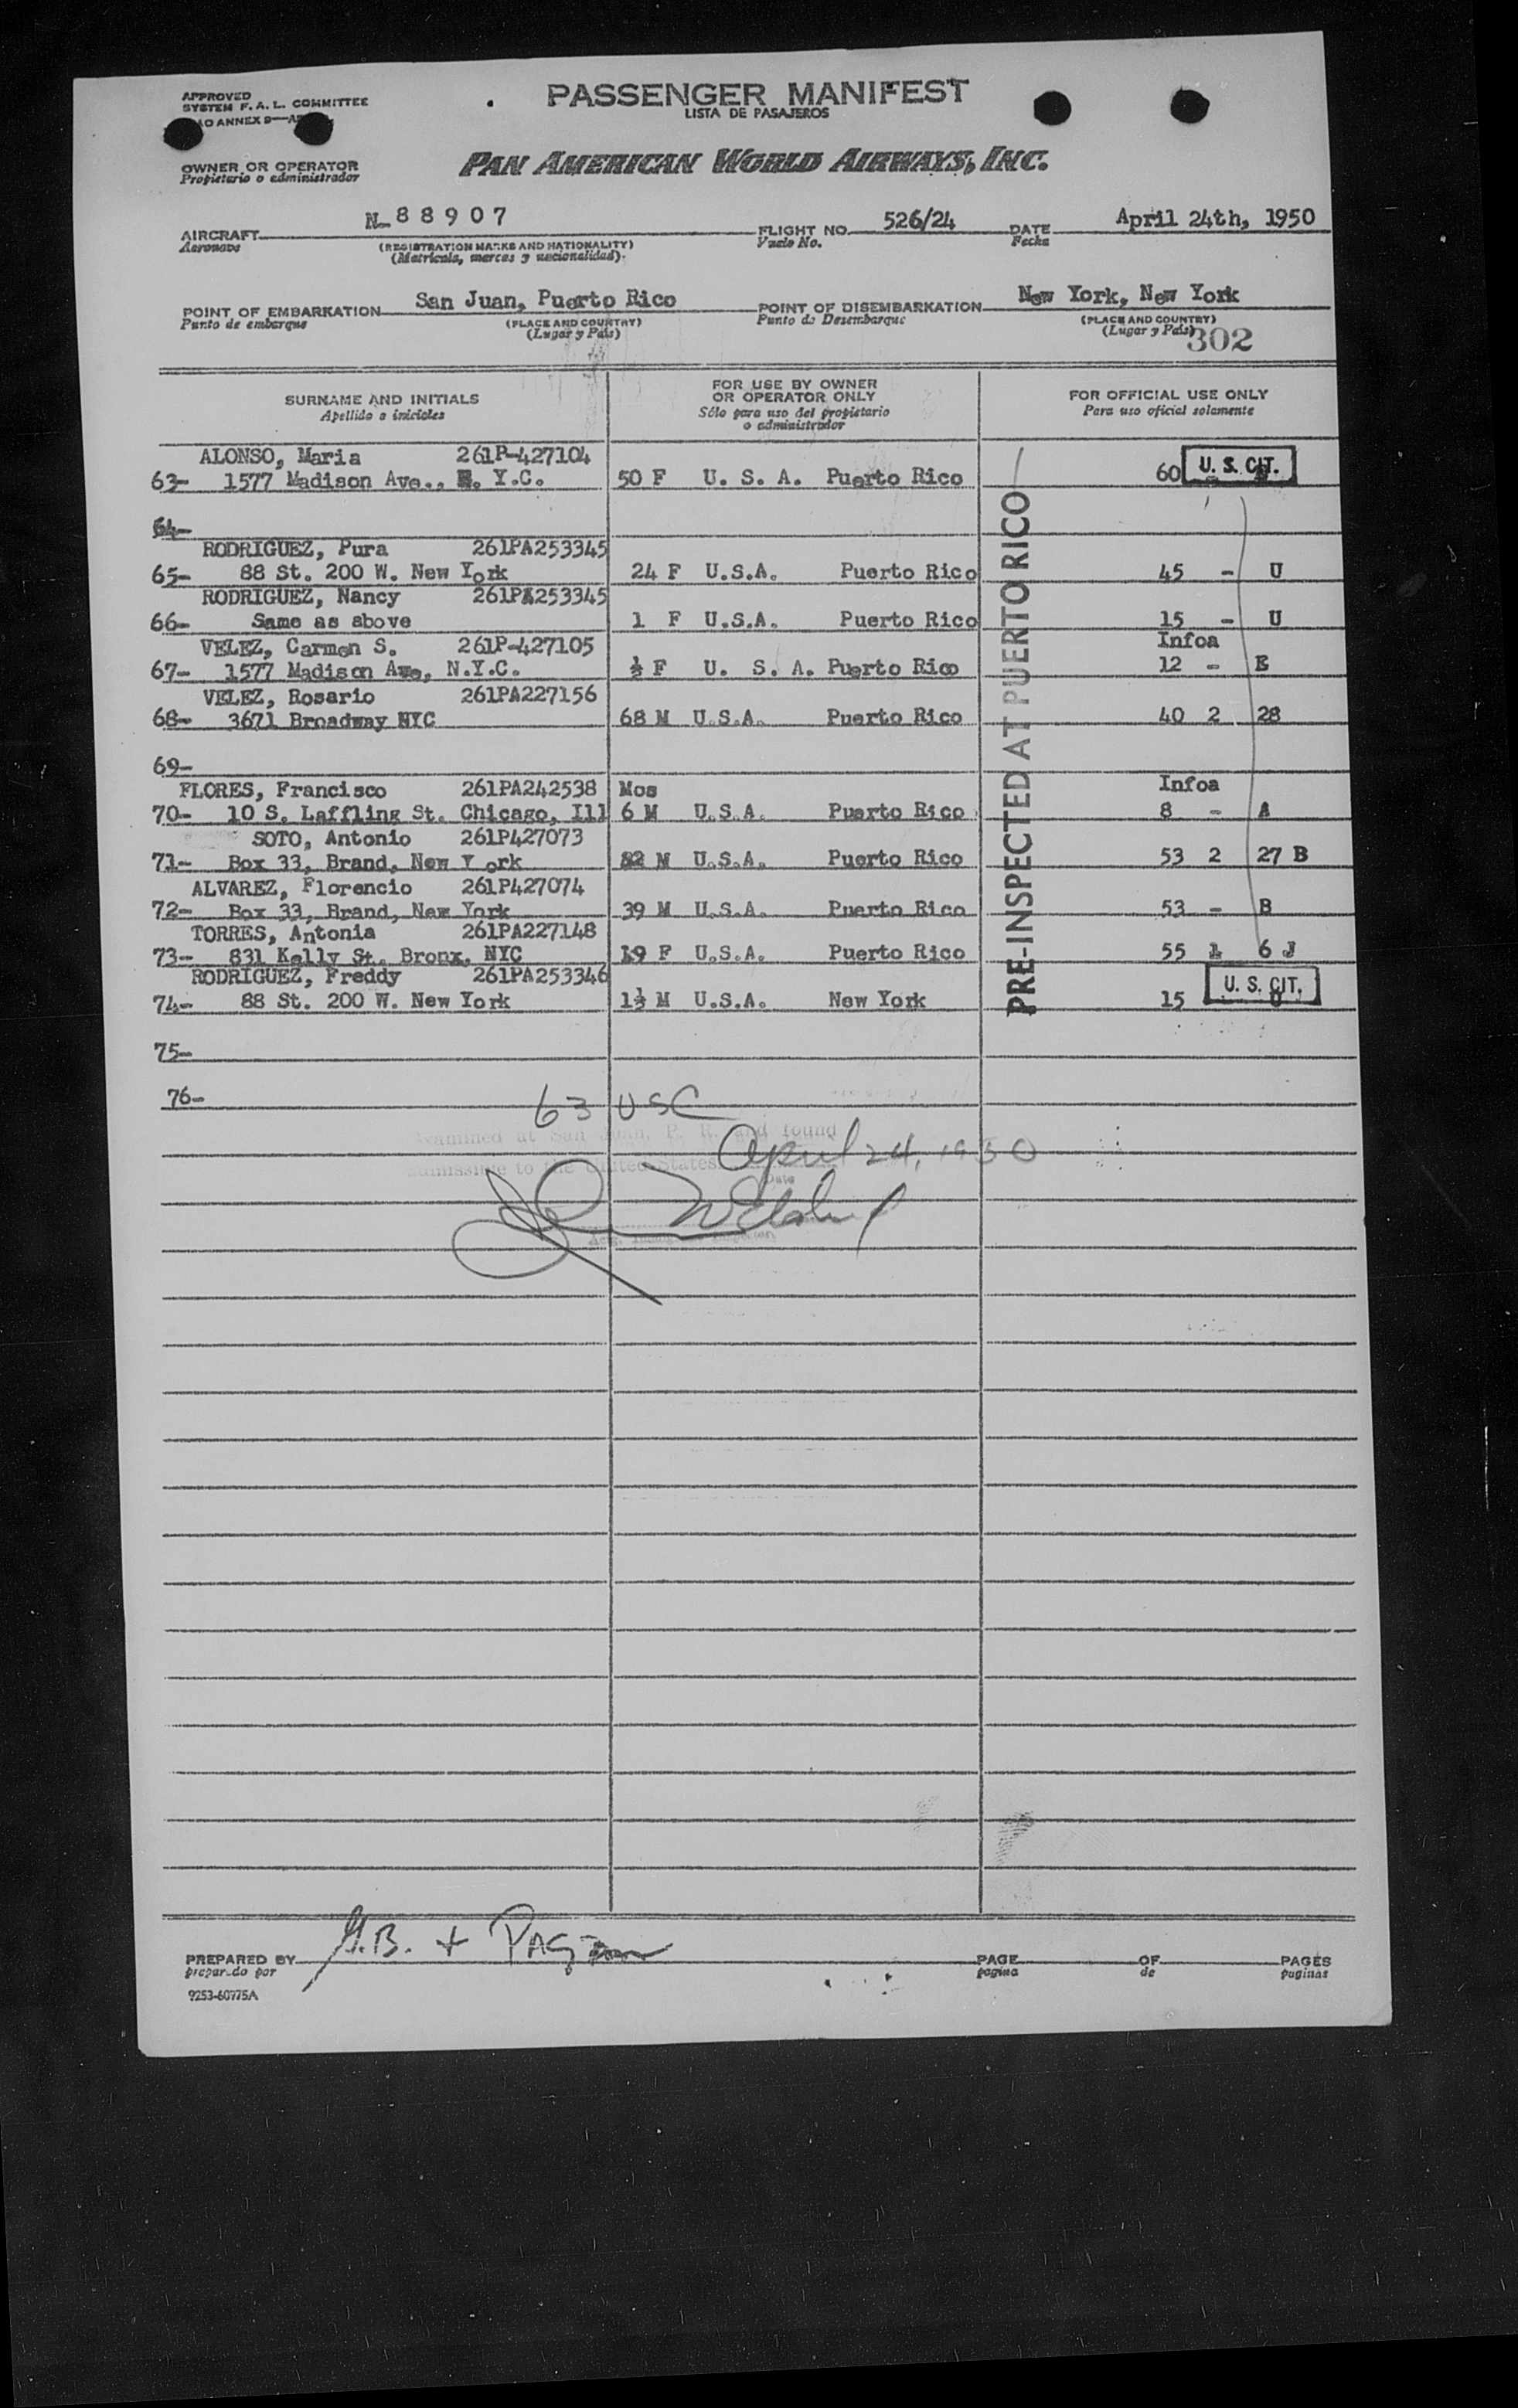 APPROVED
SYSTEM F. A. L. COMMITTEE
ANNEX 9
PASSENGER MANIFEST
LISTA DE PASAJEROS
OWNER OR OPERATOR
Propietario o administrador
PAN AMERICAN WORLD AIRWAYS, INC.
AIRCRAFT N-88907 FLIGHT NO. 526/24 DATE April 24th, 1950
Aeronave (REGISTRATION MARKS AND NATIONALITY) Vuelo No. Fecha
(Matricula, marcas y nacionalidad).
POINT OF EMBARKATION San Juan, Puerto Rico POINT OF DISEMBARKATION New York, New York
Punto de embarque (PLACE AND COUNTRY) Punto de Desembarque (PLACE AND COUNTRY)
(Lugar y País) (Lugar y País)
302
SURNAME AND INITIALS FOR USE BY OWNER OR OPERATOR ONLY FOR OFFICIAL USE ONLY
Apellido e iniciales Sólo para uso del propietario o administrador Para uso oficial solamente
ALONSO, Maria 261P-427104
63- 1577 Madison Ave., N. Y.C. 50 F U. S. A. Puerto Rico 60 U. S. CIT.
64-
RODRIGUEZ, Pura 261PA253345
65- 88 St. 200 W. New York 24 F U.S.A. Puerto Rico 45 - U
RODRIGUEZ, Nancy 261PA253345
66- Same as above 1 F U.S.A. Puerto Rico 15 - U
VELEZ, Carmen S. 261P-427105 Infoa
67- 1577 Madison Ave, N.Y.C. ½ F U. S. A. Puerto Rico 12 - E
VELEZ, Rosario 261PA227156
68- 3671 Broadway NYC 68 M U.S.A. Puerto Rico 40 2 28
69-
FLORES, Francisco 261PA242538 Mos Infoa
70- 10 S. Laffling St. Chicago, Ill 6 M U.S.A. Puerto Rico 8 - A
SOTO, Antonio 261P427073
71- Box 33, Brand, New York 32 M U.S.A. Puerto Rico 53 2 27 B
ALVAREZ, Florencio 261P427074
72- Box 33, Brand, New York 39 M U.S.A. Puerto Rico 53 - B
TORRES, Antonia 261PA227148
73- 831 Kelly St. Bronx, NYC 19 F U.S.A. Puerto Rico 55 1 6 J
RODRIGUEZ, Freddy 261PA253346
74- 88 St. 200 W. New York 1½ M U.S.A. New York 15 U. S. CIT.
PRE-INSPECTED AT PUERTO RICO
75-
76-
63 USC
Examined at San Juan, P. R. and found
admissible to the United States April 24, 1950
Date
PREPARED BY G.B. + PAG PAGE OF PAGES
preparado por pagina de paginas
9253-60775A